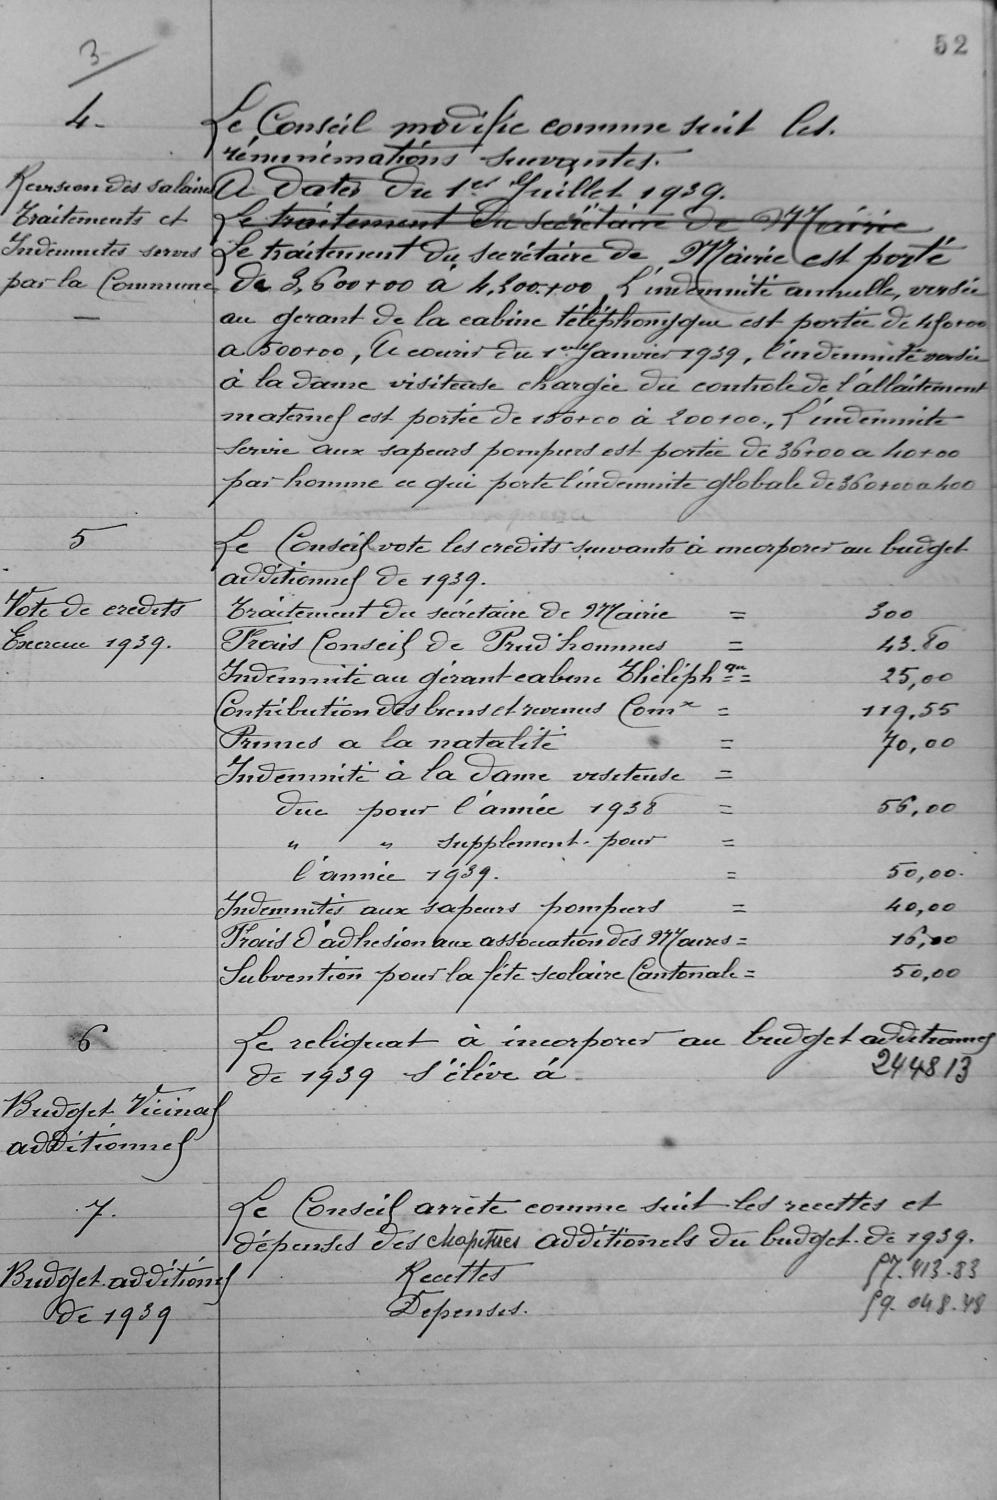 52
3
4.
Le Conseil modifie comme suit les.
rémunérations suvantes.
Revision des salaires
A dater du 1er Juillet 1939.
Traitements et
Le traitement du secrétaire de Mairie
Indemnites servis
Le traitement du secrétaire de Mairie est porté
par la Commune
de 3,600+00 à 4,200+00, L'indemnité annulle, versée
—
au gerant de la cabine téléphonique est portée de 450+00
a 500+00, A courir du 1er Janvier 1939, l'indemnité versée
à la dame visiteuse chargée du controle de l'allaitement
maternel est portée de 150+00 à 200+00., L'indemnite
servie aux sapeurs pompiers est portée de 36+00 a 40+00
par homme ce qui porte l'indemnite globale de 360+00 a 400
5
Le Conseil vote les credits suvants à incorporer au budget
additionnel de 1939.
Vote de credits
Traitement du secretaire de Mairie = 300
Exercice 1939.
Frais Conseil de Prud'hommes = 43.80
Indemnite au gérant cabine Théléph que = 25,00
Contribution des biens et revenus Comx = 119.55
Primes a la natalité = 70,00
Indemnité à la dame visiteuse =
due pour l'année 1938 = 56,00
" " supplement pour =
l'année 1939. = 50,00.
Indemnités aux sapeurs pompiers = 40,00
Frais d'adhesion aux association des Maires = 16,00
Subvention pour la fête scolaire Cantonale = 50,00
6
Le reliquat à incorporer au budget additionnel
de 1939 s'élève à 244813
Budget Vicinal
additionnel
7.
Le Conseil arrète comme suit les recettes et
dépenses des chapitres additionels du budget de 1939.
Budget additionel
Recettes 57.413.83
de 1939
Depenses. 59.048.48